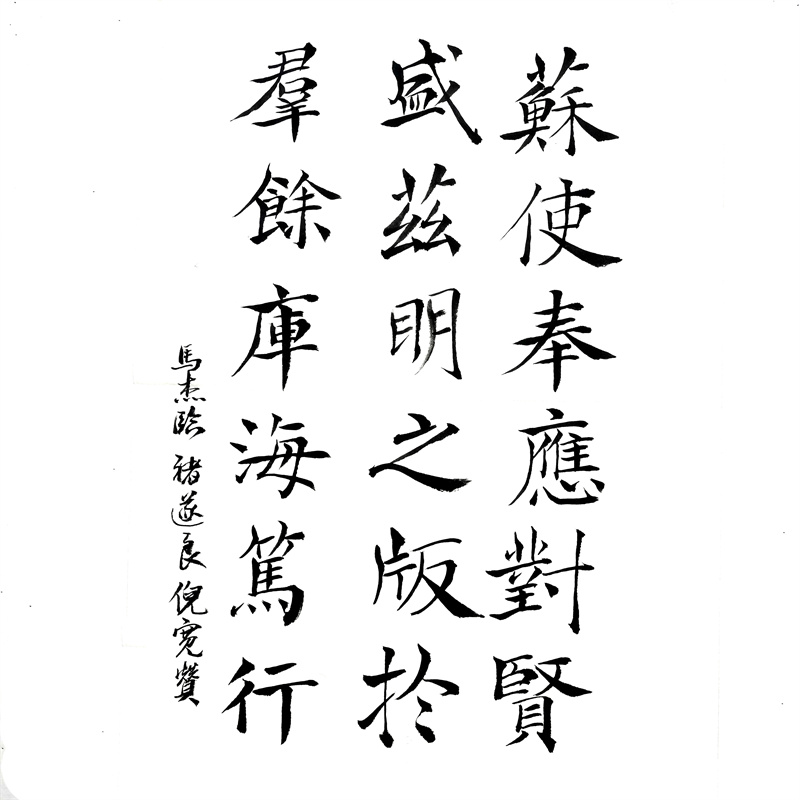 蘇使奉應對賢
盛茲明之版於
羣餘庫海篤行
馬杰臨 褚遂良倪寬贊